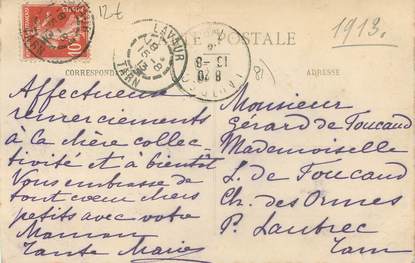 12 t
1913.
LE POSTALE
CORRESPOND
ADRESSE
10
LAVAUR
TARN
13 - 8
8 20
81
Affectueux
remerciements
à la chère collec-
tivité et à bientôt
Vous embrasse de
tout coeur chers
petits avec votre
Maman
Tante Marie
Monsieur
Gérard de Foucaud
Mademoiselle
S. de Foucaud
Ch. des Ormes
P. Lautrec
Tarn